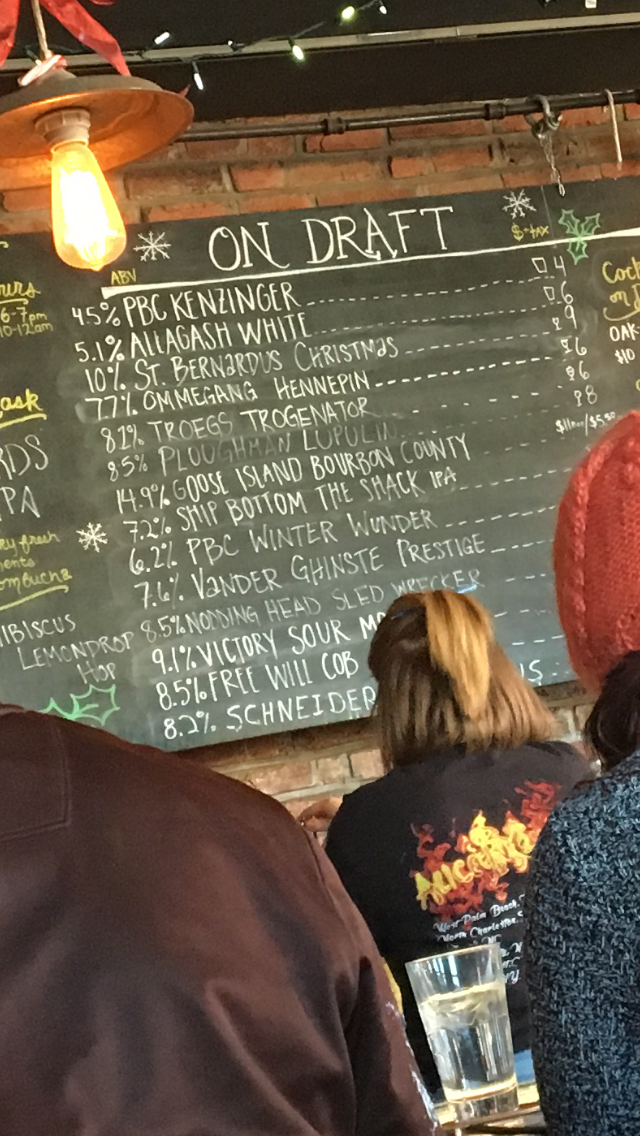 ON DRAFT
$+TAX
ABV
4.5% PBC KENZINGER 4
5.1% ALLAGASH WHITE 6
10% ST. BERNARDUS CHRISTMAS 9
7.7% OMMEGANG HENNEPIN 6
8.1% TROEGS TROGENATOR 6
8.5% PLOUGHMAN LUPULIN 8
14.9% GOOSE ISLAND BOURBON COUNTY
7.2% SHIP BOTTOM THE SHACK IPA
6.2% PBC WINTER WUNDER
7.6% VANDER GHINSTE PRESTIGE
8.5% NODDING HEAD SLED WRECKER
9.1% VICTORY SOUR
8.5% FREE WILL COB
8.2% SCHNEIDER
6-7pm
10-12am
ask
RDS
PA
ry fresh
ents
ombucha
HIBISCUS
LEMONDROP
HOP
Cock
on
OAK
$10
West Palm Beach,
North Charleston,